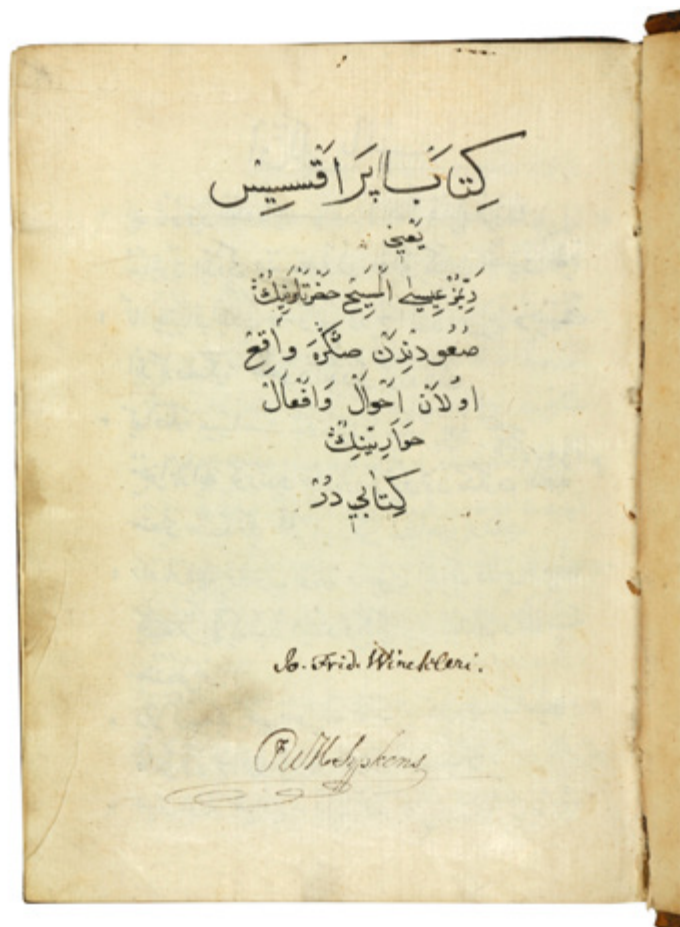 كِتَابْ پَرَاقْسِيسْ
يَعْنِي
رَبِّمِزْ عِيسٰى اَلْمَسِيحْ حَضْرَتْلَرِينِكْ
صُعُودِنْدَنْ صُكْرَه وَاقِعْ
اُولَانْ اَحْوَالْ وَافْعَالْ
حَوَارِيِينِكْ
كِتَابِي دُرْ
Jo. Frid. Winckleri.
FWH Sypkens